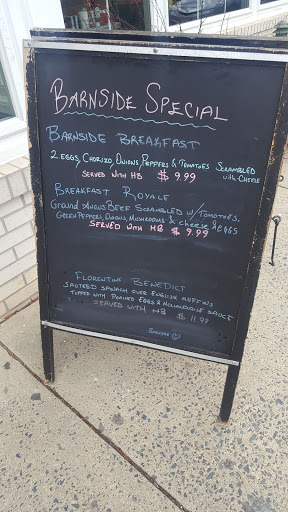 BARNSIDE SPECIAL
BARNSIDE BREAKFAST
2 EGGS, CHORIZO, ONIONS, PEPPERS & TOMATOES SCRAMBLED
with CHEESE
SERVED WITH HB $ 9.99
BREAKFAST ROYALE
Ground ANGUS BEEF SCRAMBLED W/ TOMATOES,
GREEN PEPPERS, ONIONS, MUSHROOMS & cheese & EGGS
SERVED WITH HB $ 9.99
FLORENTINE BENEDICT
SAUTEED SPINACH OVER ENGLISH MUFFINS
TOPPED WITH POACHED EGGS & HOLLANDAISE SAUCE
SERVED WITH HB $ 11.99